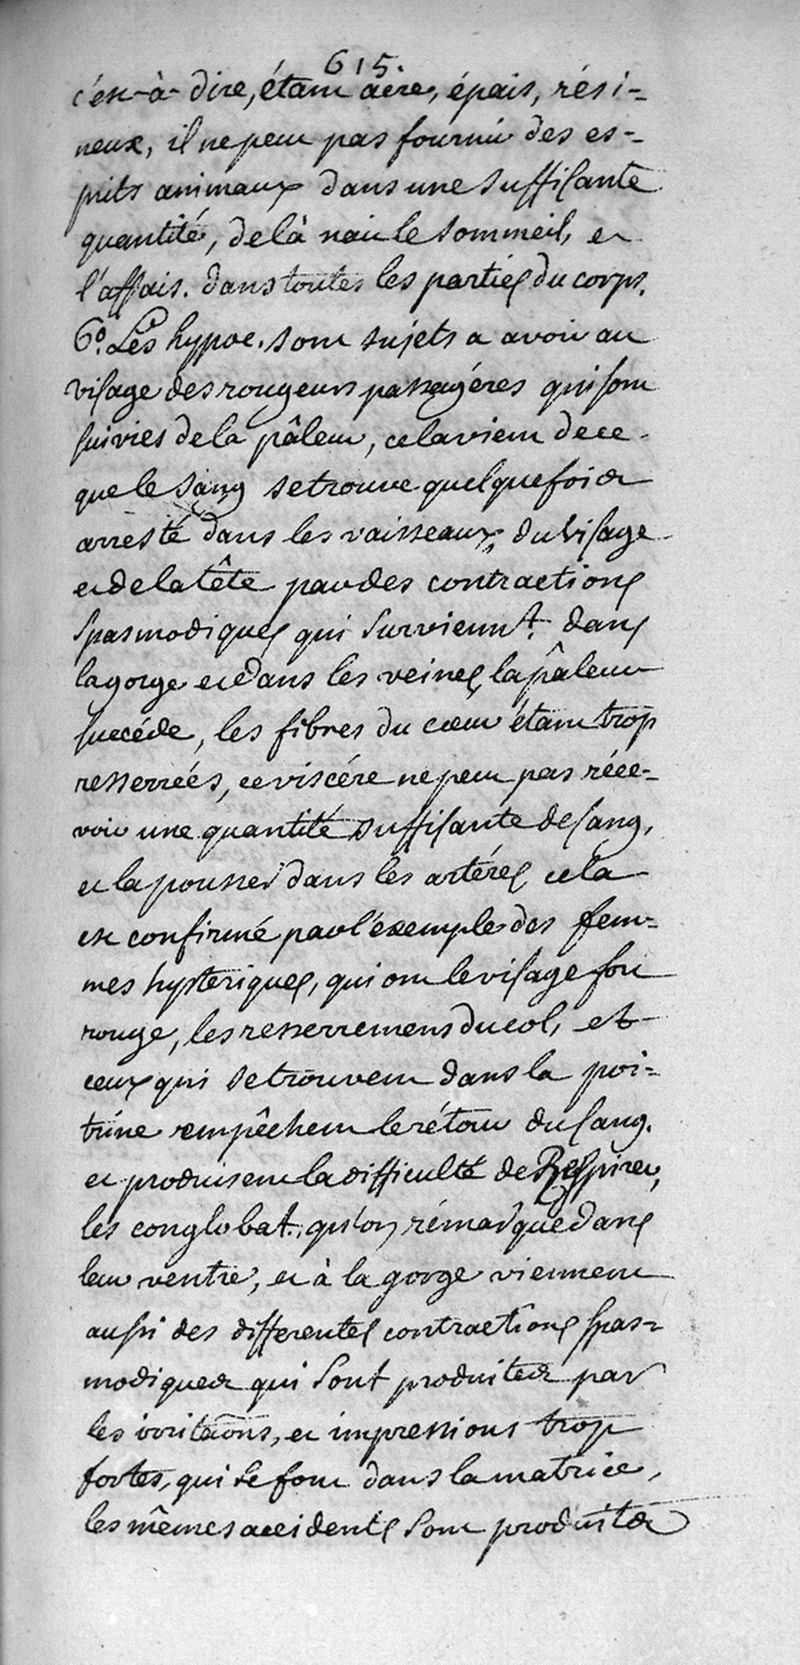 615.
c'est-à-dire, étant acre, épais, rési-
neux, il ne peut pas fournir des es-
prits animaux dans une suffisante
quantité, de là nait le sommeil, et
l'affais. dans toutes les parties du corps.
6.° Les hypoc. sont sujets a avoir au
visage des rougeurs passagéres qui sont
suivies de la pâleur, cela vient de ce
que le sang se trouve quelquefois
arresté dans les vaisseaux, du visage
et de la tête par des contractions
spasmodiques qui surviennt. dans
la gorge et dans les veines, la pâleur
succéde, les fibres du cœur étant trop
resserreés, ce viscére ne peut pas réce-
voir une quantité suffisante de sang,
et la pousser dans les artéres cela
est confirmé par l'éxemple des fem-
mes hysteriques, qui ont le visage fort
rouge, les resserremens du col, et
ceux qui se trouvent dans la poi-
trine empêchent le rétour du sang.
et produisent la difficulté de Respirer,
les conglobat. qu'on rémarque dans
leur ventre, et à la gorge viennent
aussi des differentes contractions spas-
modiques qui sont produites par
les irritaõns, et impressions trop
fortes, qui se font dans la matrice,
les mêmes accidents sont produits